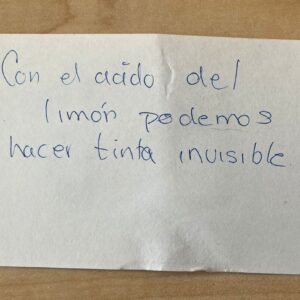 Con el acido del
limón podemos
hacer tinta invisible.